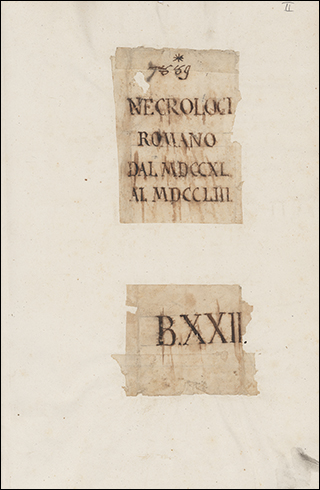 II
*
7889
NECROLOGI
ROMANO
DAL MDCCXL
AL MDCCLIII
B.XXII.